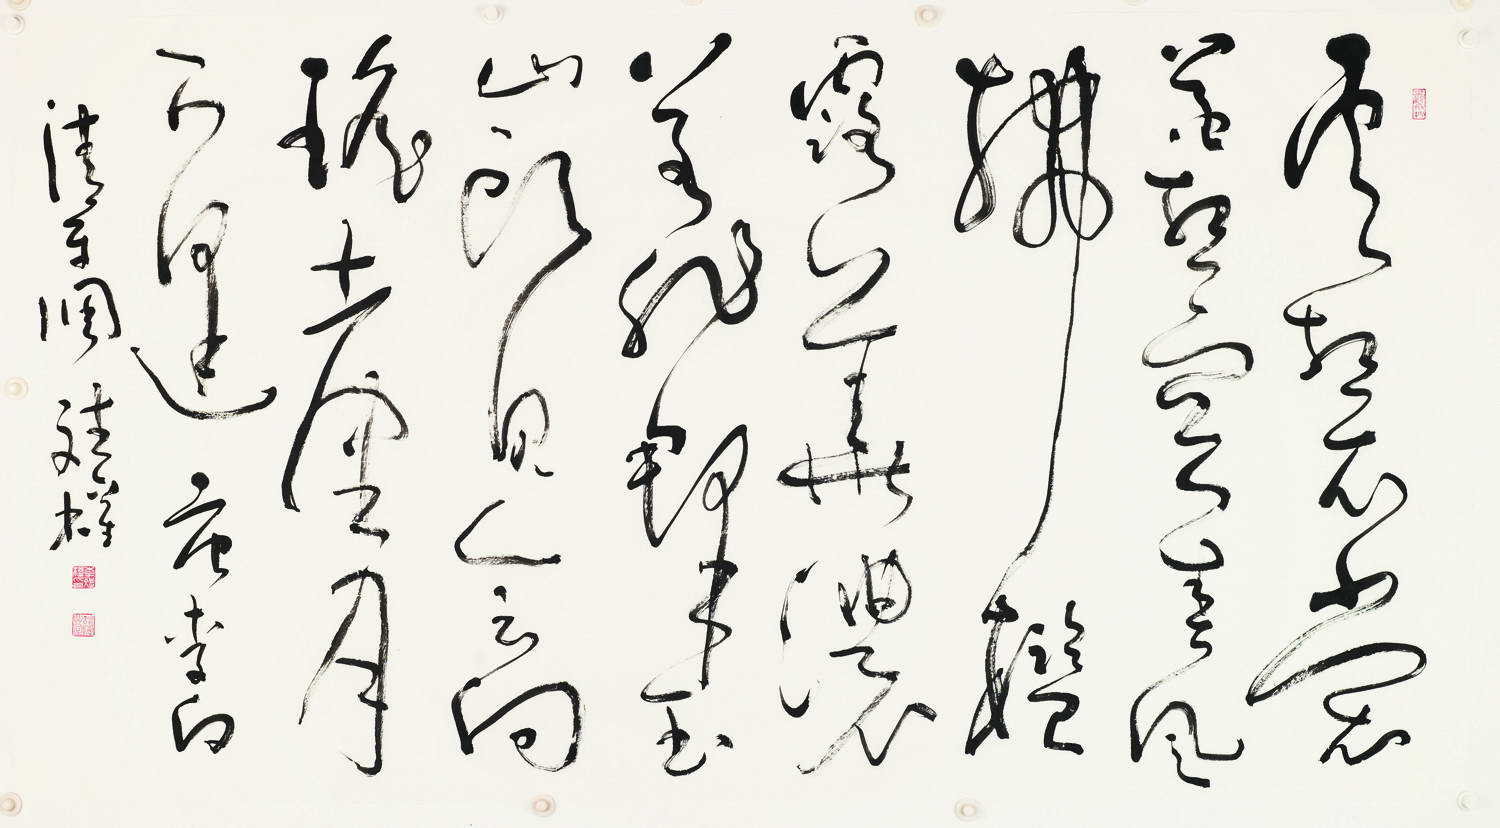 雲想衣裳
花想容春風
拂檻
露華濃
若非群玉
山頭見會向
瑤臺月
下逢 唐李白
清平調